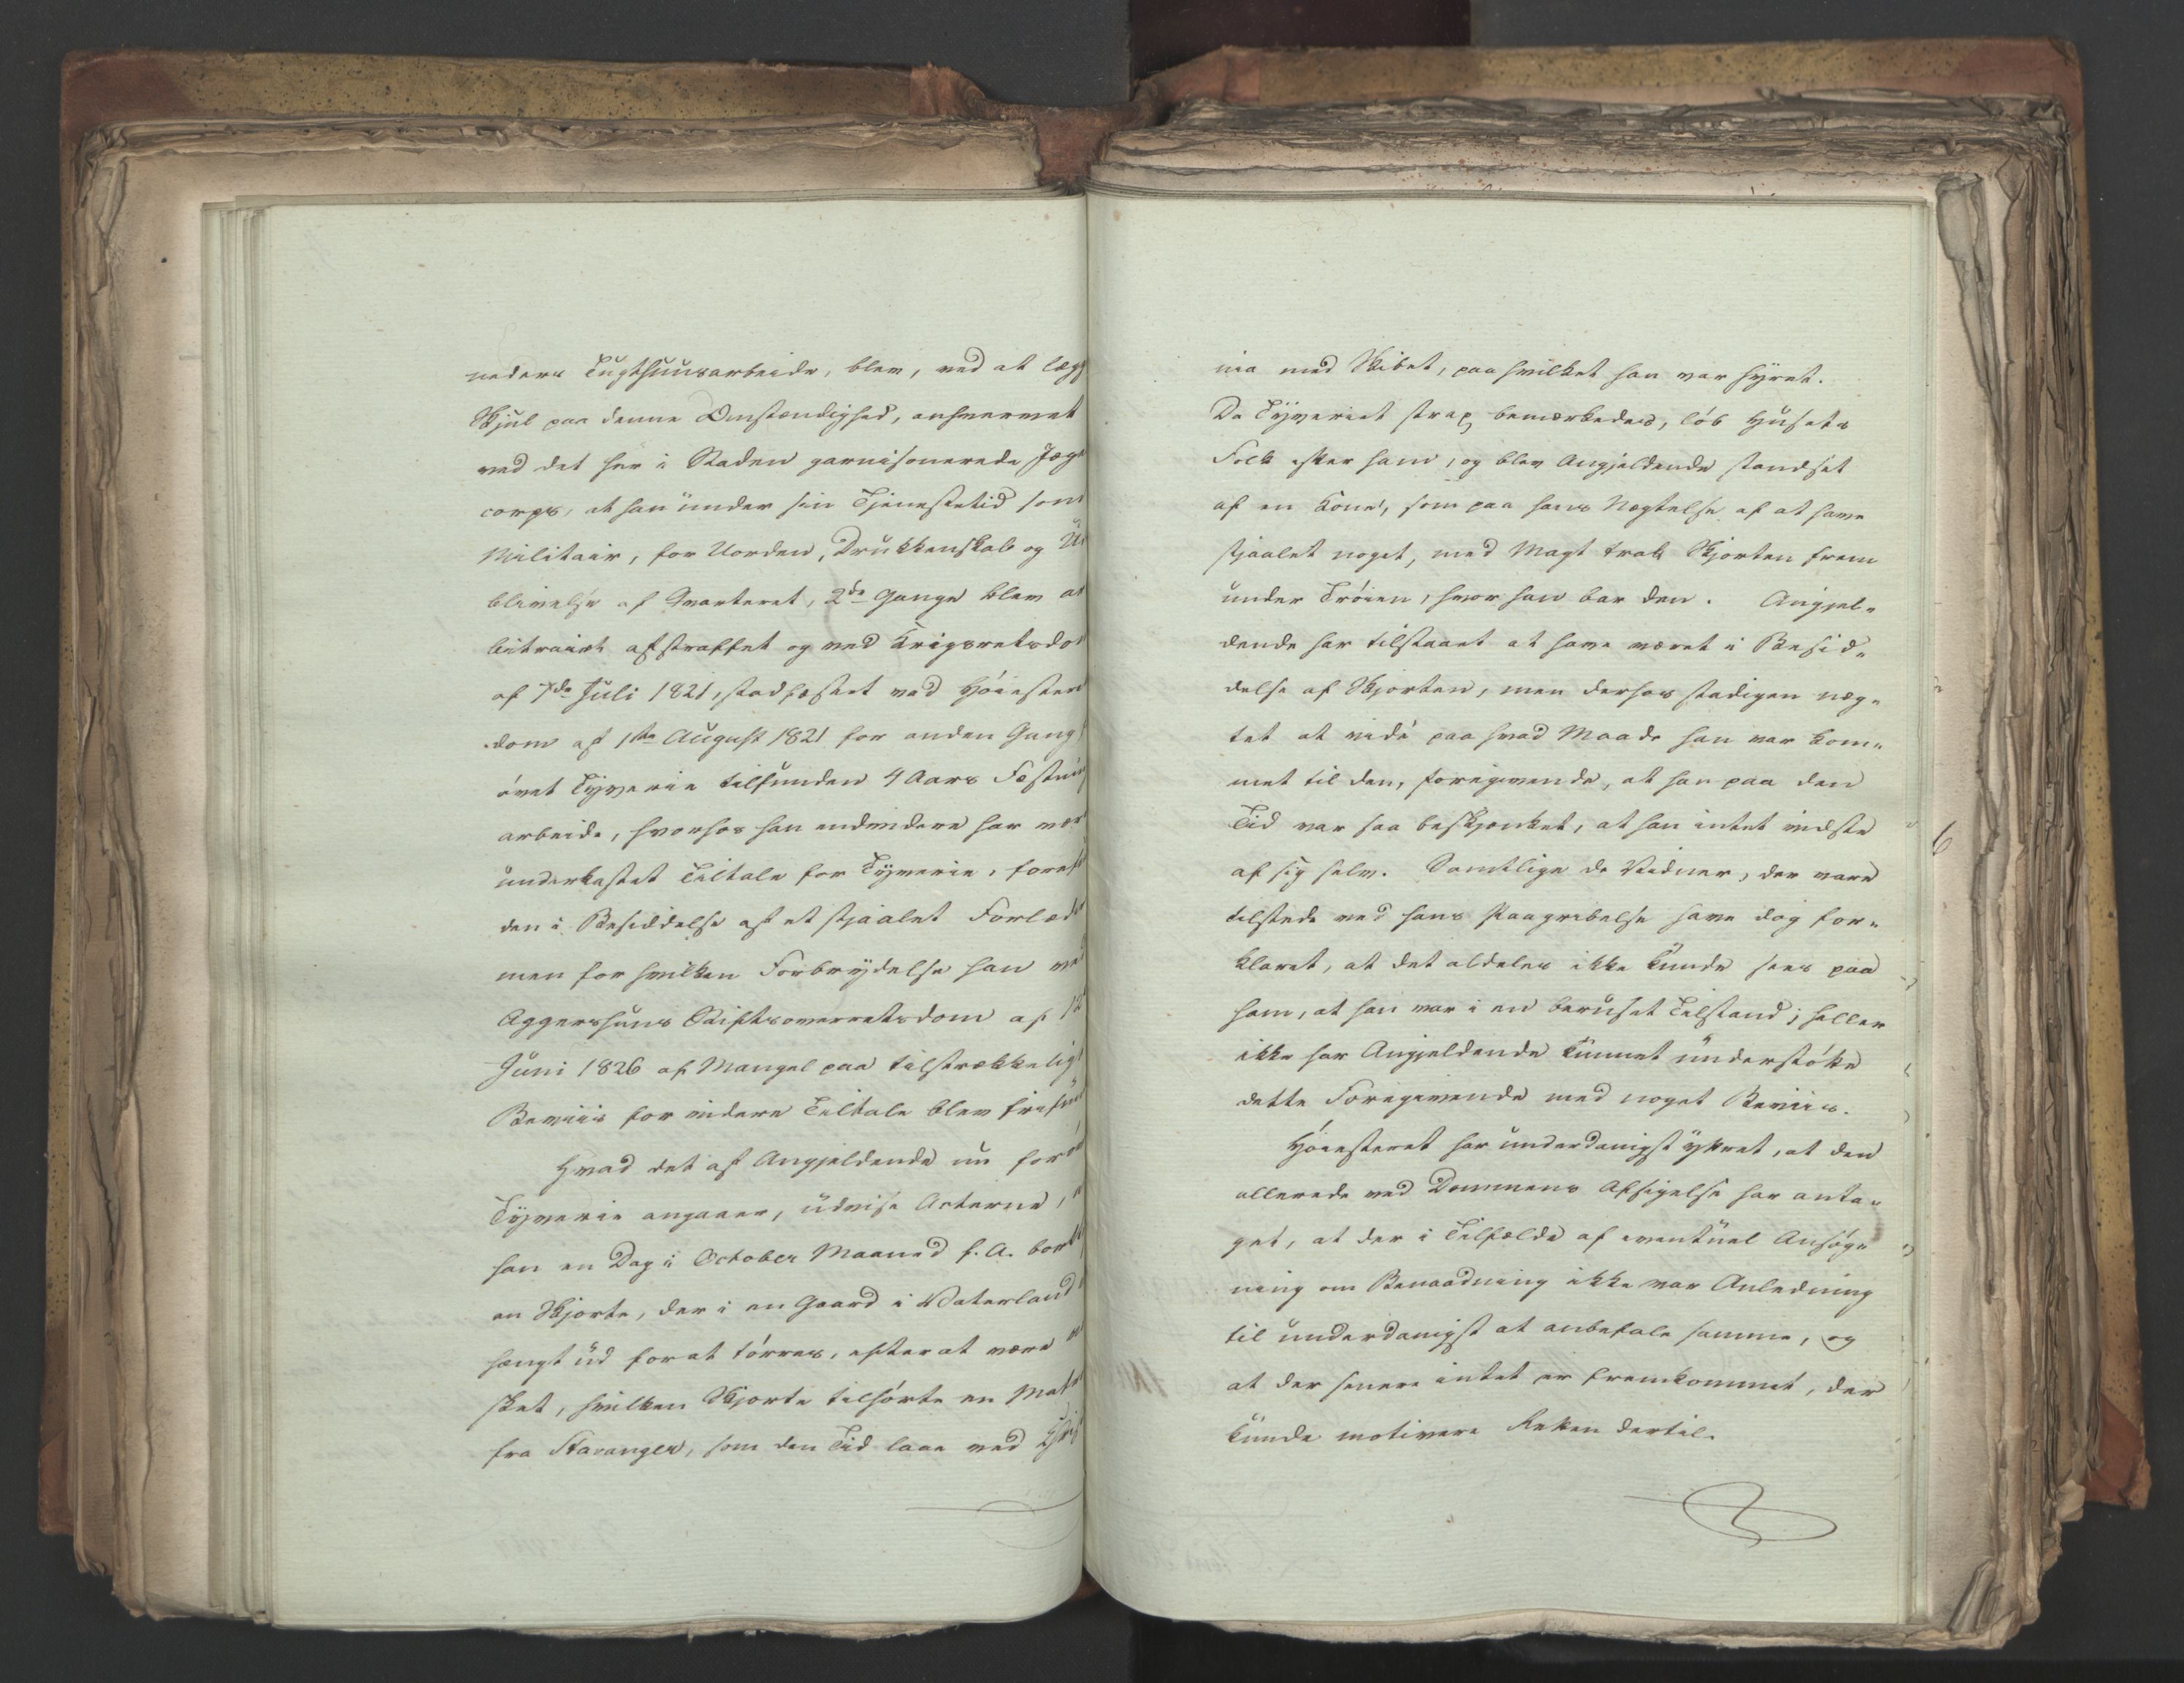 neders Tugthuusarbeide, blev, ved at lægg
Skjul paa denne Omstændighed, anhvervet
ved det her i Staden garnisonerede Jæge
corps, at han under sin Tjenestetid som
Militair, for Uorden, Drukkenskab og Ud
blivelse af Qvarteret, 2de Gange blev ar
bitrairt afstraffet og ved Krigsretsdom
af 7de Juli 1821, stadfæstet ved Høiesteret
dom af 1ste August 1821 for anden Gang
øvet Tyverie tilfunden 4 Aars Fæstning
arbeide, hvorhos han endvidere har vær
underkastet Tiltale for Tyverie, forefun
den i Besiddelse af et stjaalet Forlæder
men for hvilken Forbrydelse han ved
Aggershuus Stiftsoverretsdom af 12
Juni 1826 af Mangel paa tilstrækkeligt
Beviis for videre Tiltale blev frifun
Hvad det af Angjeldende nu forøv
Tyverie angaaer, udvise Acterne, at
han en Dag i October Maaned f. A. bortt
en Skjorte, der i en Gaard i Vaterland v
hængt ud for at tørres, efter at være va
sket, hvilken Skjorte tilhørte en Matr
fra Stavanger, som den Tid laae ved Chri
nia med Skibet, paa hvilket han var hyret.
Da Tyveriet strax bemærkedes, løb Husets
Folk efter ham, og blev Angjeldende standset
af en Kone, som paa hans Nægtelse af at have
stjaalet noget, med Magt trak Skjorten frem
under Trøien, hvor han bar den. Angjel-
dende har tilstaaet at have været i Besid-
delse af Skjorten, men derhos stadigen næg-
tet at vide paa hvad Maade han var kom-
met til den, foregivende, at han paa den
Tid var saa beskjenket, at han intet vidste
af sig selv. Samtlige de Vidner, der vare
tilstede ved hans Paagribelse have dog for-
klaret, at det aldeles ikke kunde sees paa
ham, at han var i en beruset Tilstand; heller
ikke har Angjeldende kunnet understøtte
dette Foregivende med noget Beviis.
Høiesteret har underdanigst yttret, at den
allerede ved Dommens Afsigelse har anta-
get, at der i Tilfælde af eventuel Ansøg-
ning om Benaadning ikke var Anledning
til underdanigst at anbefale samme, og
at der senere intet er fremkommet, der
kunde motivere Retten dertil.